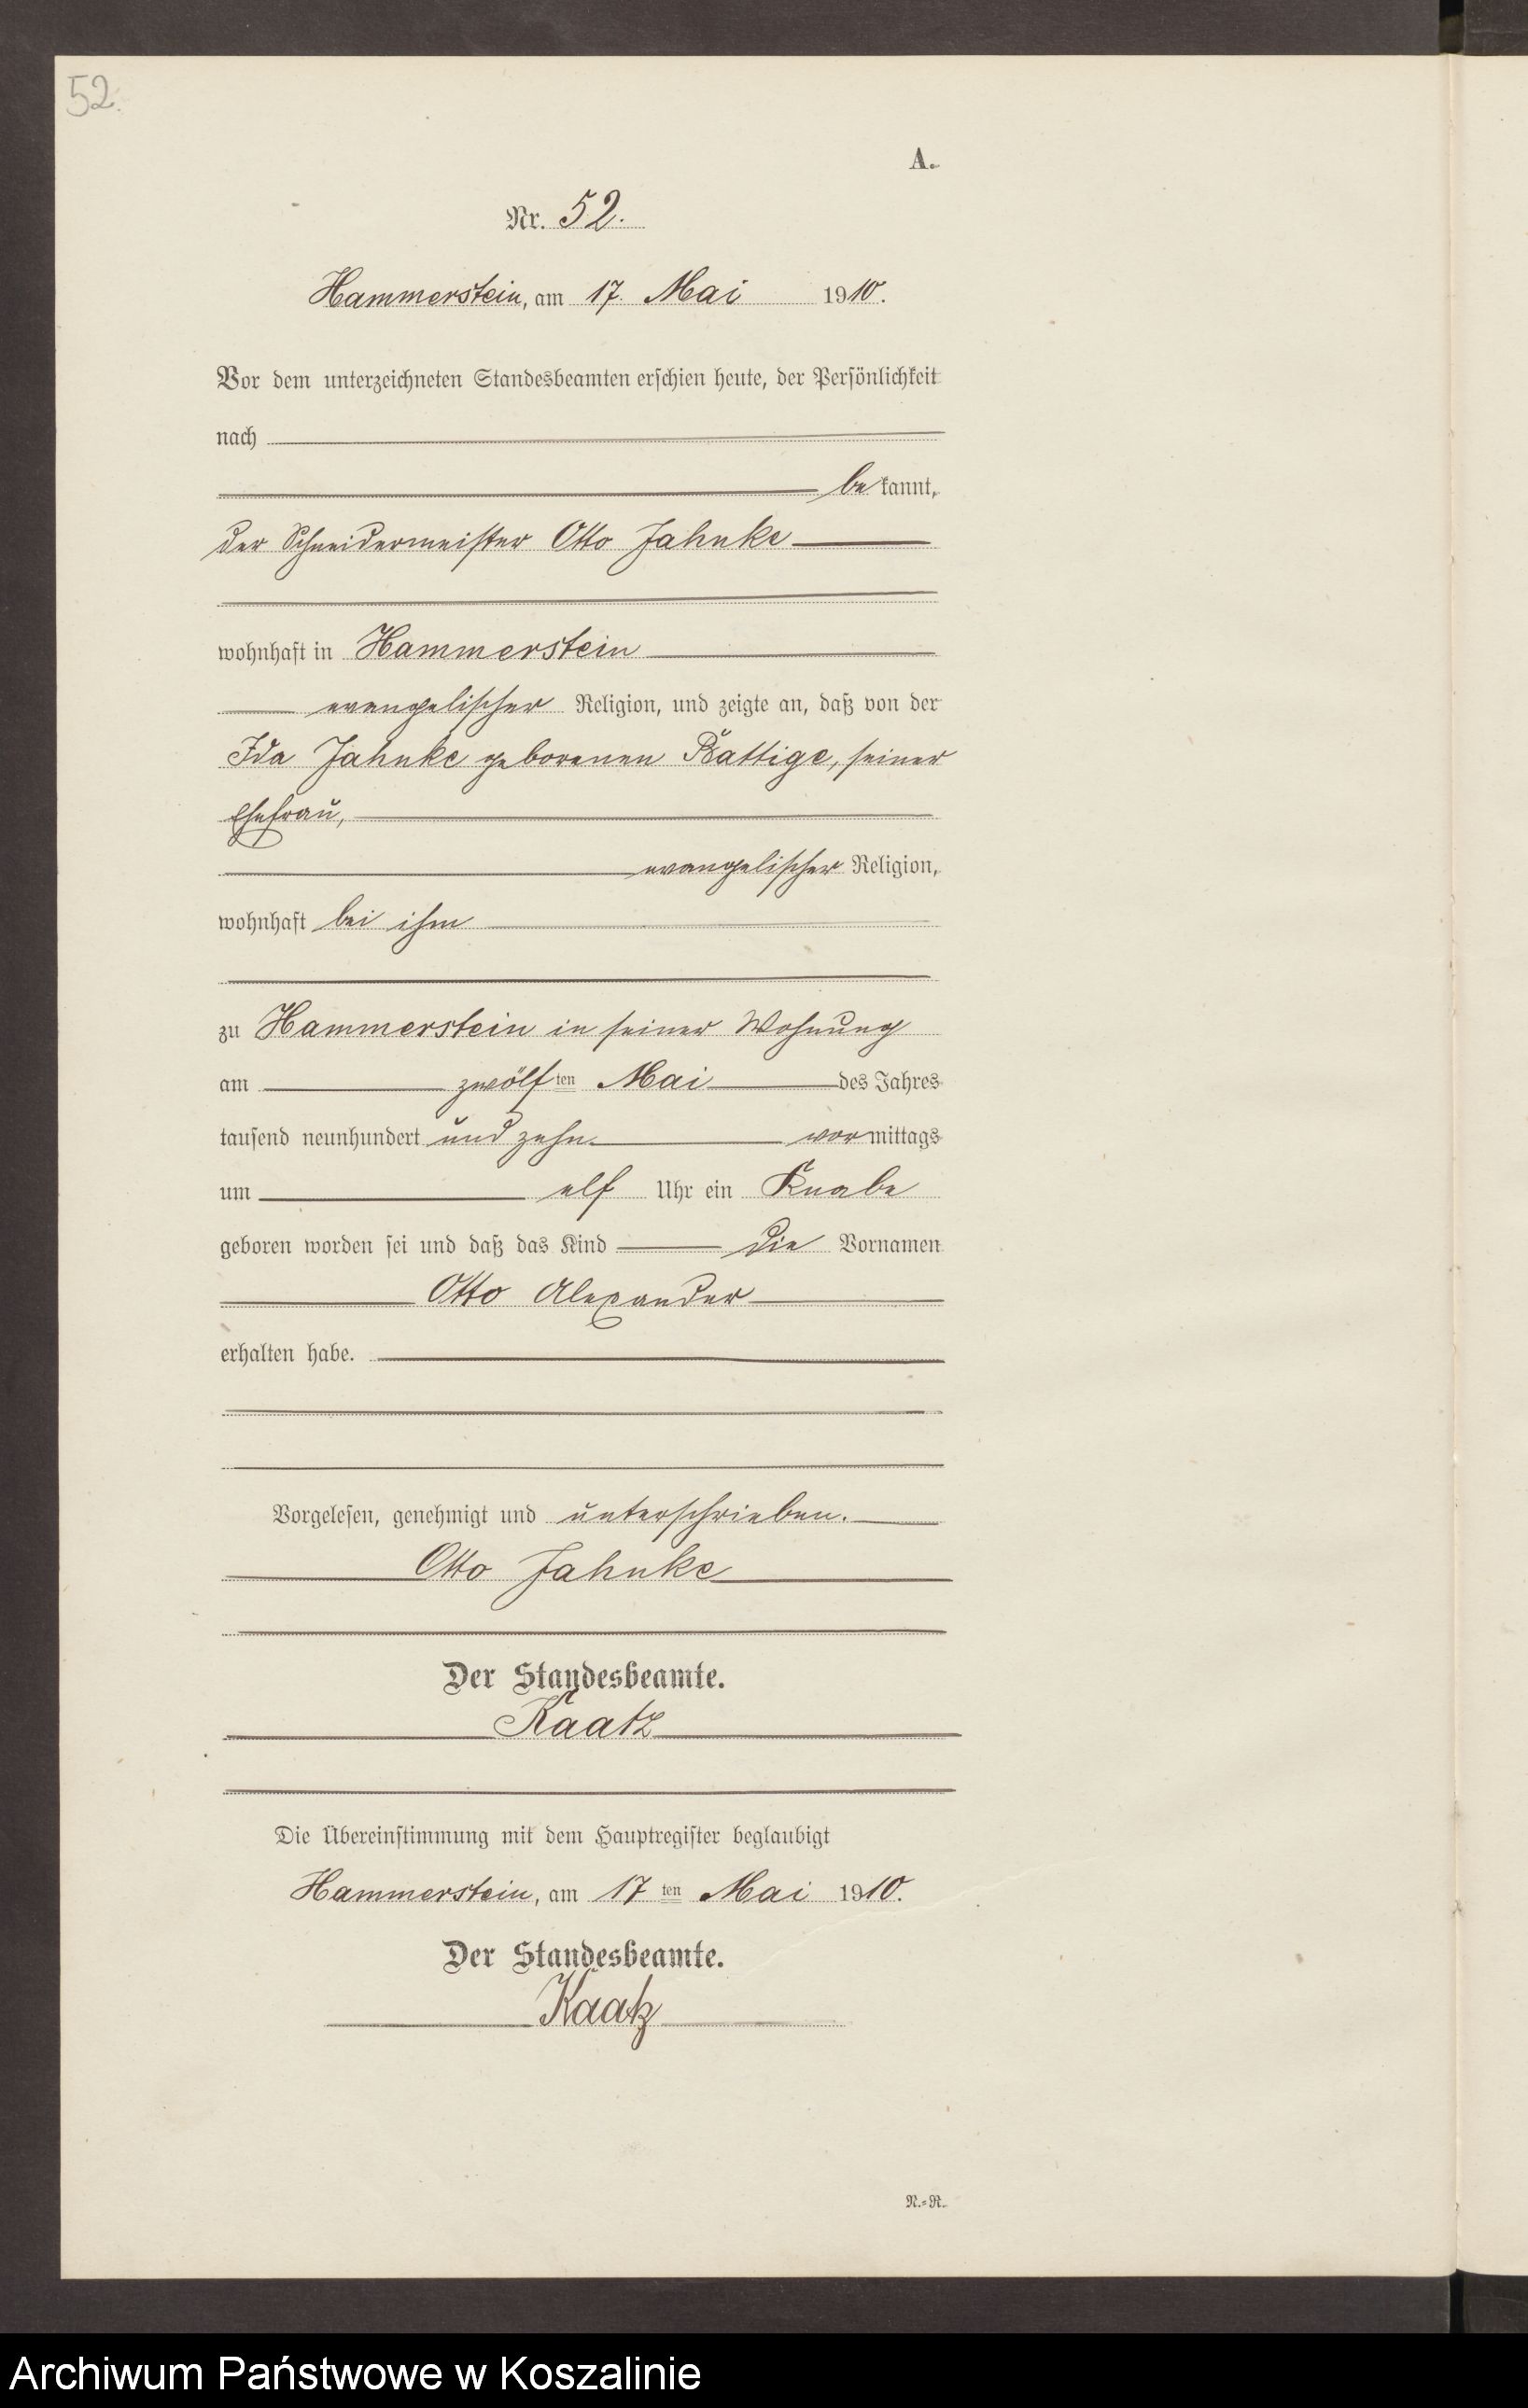 52.
A.
Nr. 52.
Hammerstein, am 17. Mai 1910.
Vor dem unterzeichneten Standesbeamten erschien heute, der Persönlichkeit
nach
be kannt,
der Schneidermeister Otto Jahnke
wohnhaft in Hammerstein
evangelischer Religion, und zeigte an, daß von der
Ida Jahnke geborenen Rattige, seiner
Ehefrau,
evangelischer Religion,
wohnhaft bei ihm
zu Hammerstein in seiner Wohnung
am zwölf ten Mai des Jahres
tausend neunhundert und zehn vormittags
um elf Uhr ein Knabe
geboren worden sei und daß das Kind die Vornamen
Otto Alexander
erhalten habe.
Vorgelesen, genehmigt und unterschrieben.
Otto Jahnke
Der Standesbeamte.
Kaatz
Die Übereinstimmung mit dem Hauptregister beglaubigt
Hammerstein, am 17 ten Mai 1910.
Der Standesbeamte.
Kaatz
N.=R.
Archiwum Państwowe w Koszalinie